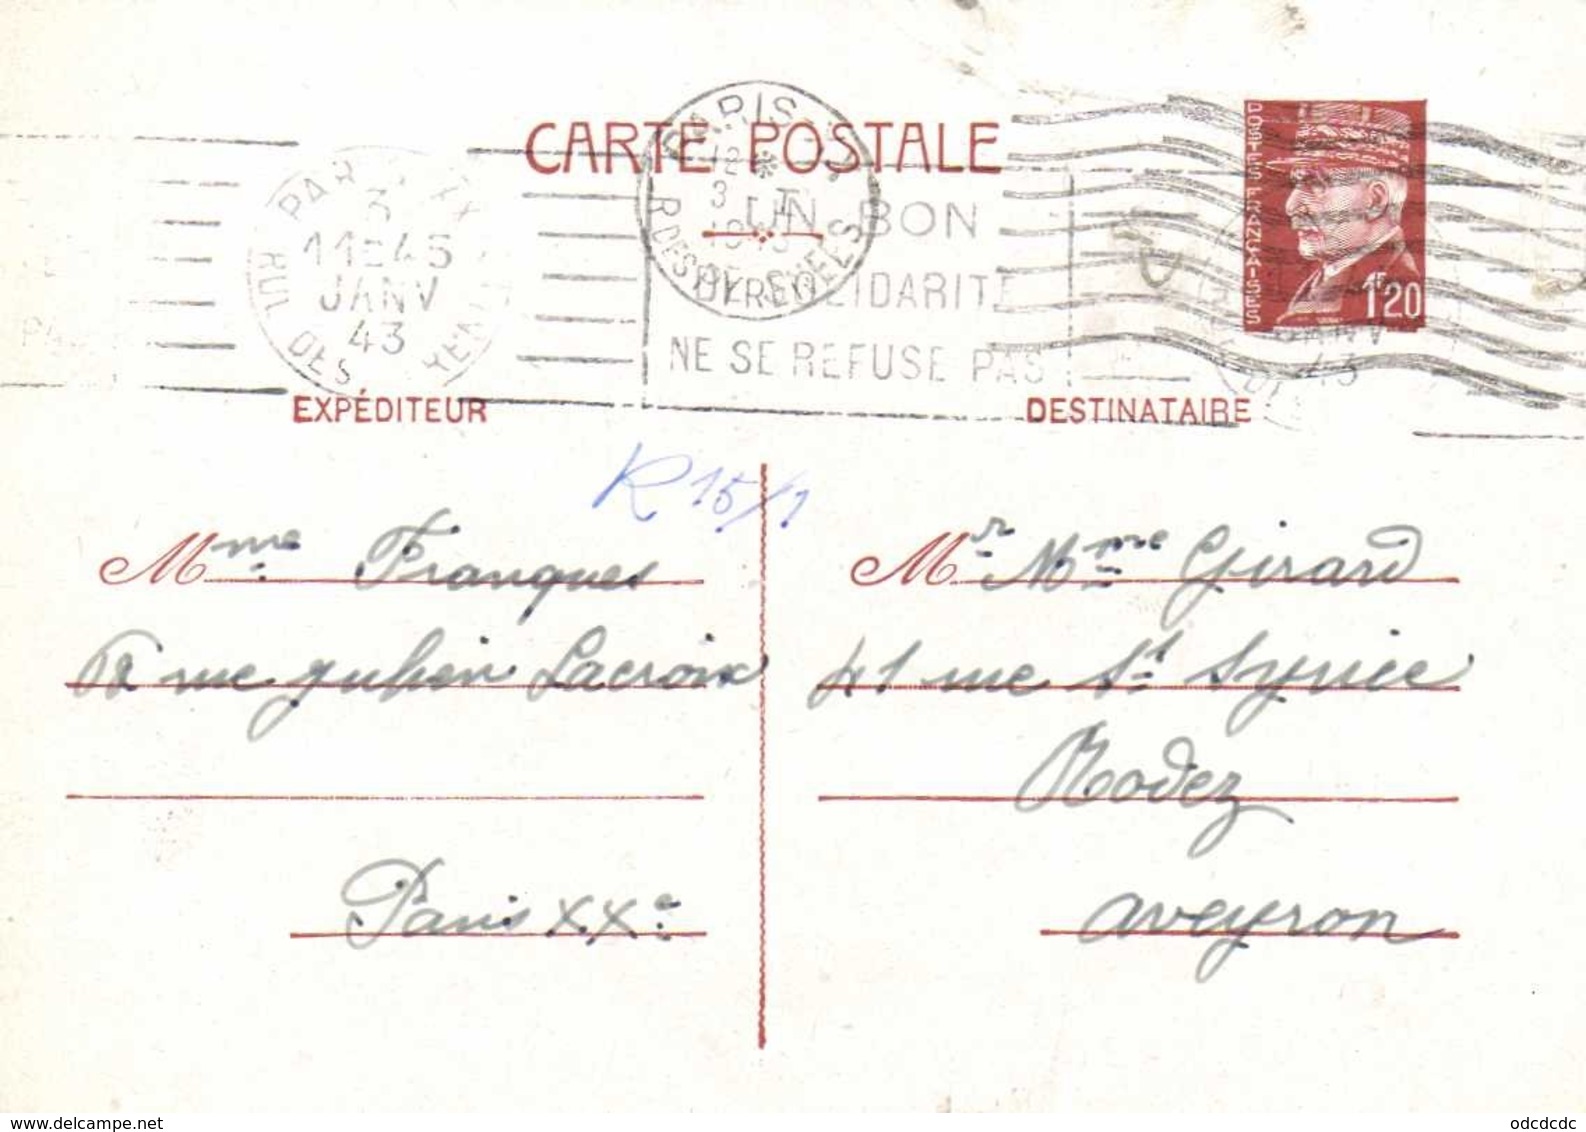 CARTE POSTALE
POSTES FRANÇAISES
1F20
PARIS
12 *
3 I
1943
R DES PYRENEES
PARIS XX
3
11-45
JANV
43
RUE DES PYRENEES
UN BON
DE SOLIDARITE
NE SE REFUSE PAS
JANV
43
EXPÉDITEUR
DESTINATAIRE
R 15/1
Mme Franques
rue Julien Lacroix
Paris XXe
Mr Mme Girard
41 rue St Syrice
Rodez
aveyron
www.delcampe.net
odcdcdc